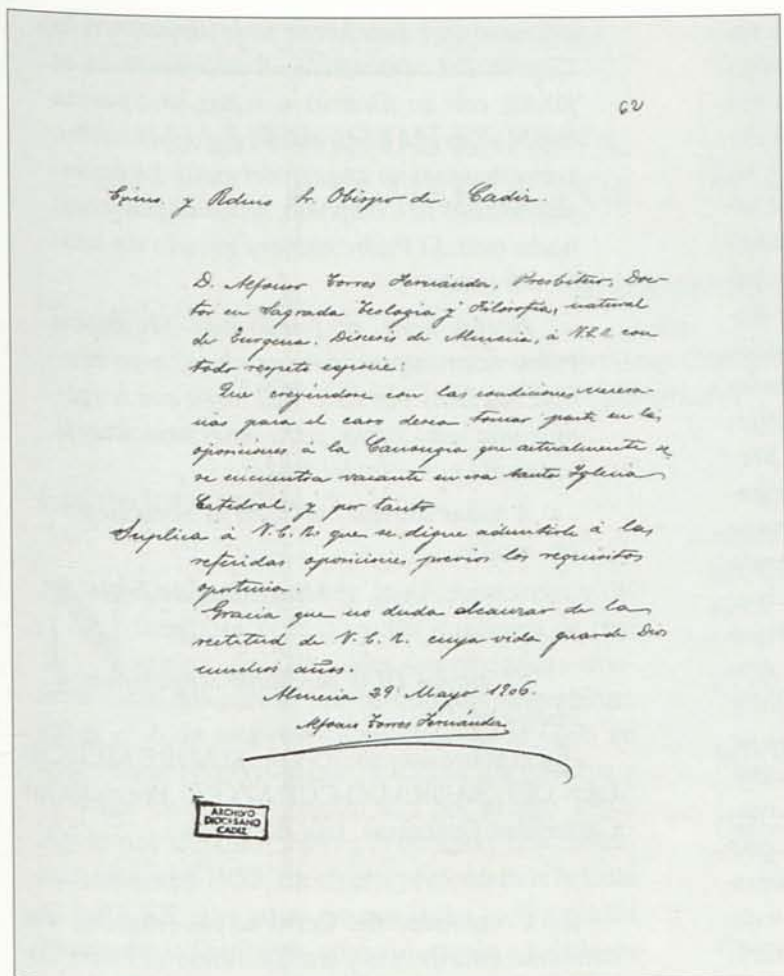 62
Exmo. y Rdmo Sr. Obispo de Cadiz.
D. Alfonso Torres Fernández, Presbítero, Doc-
tor en Sagrada Teología y Filosofía, natural
de Zurgena, Diócesis de Almería, á V.E.R. con
todo respeto expone:
Que creyéndose con las condiciones necesa-
rias para el caso desea tomar parte en las
oposiciones á la Canongia que actualmente se
se encuentra vacante en esa Santa Iglesia
Catedral, y por tanto
Suplica á V.E.R. que se digne admitirle á las
referidas oposiciones previos los requisitos
oportunos
Gracia que no duda alcanzar de la
rectitud de V.E.R. cuya vida guarde Dios
muchos años.
Almería 29 Mayo 1906.
Alfonso Torres Fernández
ARCHIVO
DIOCESANO
CADIZ